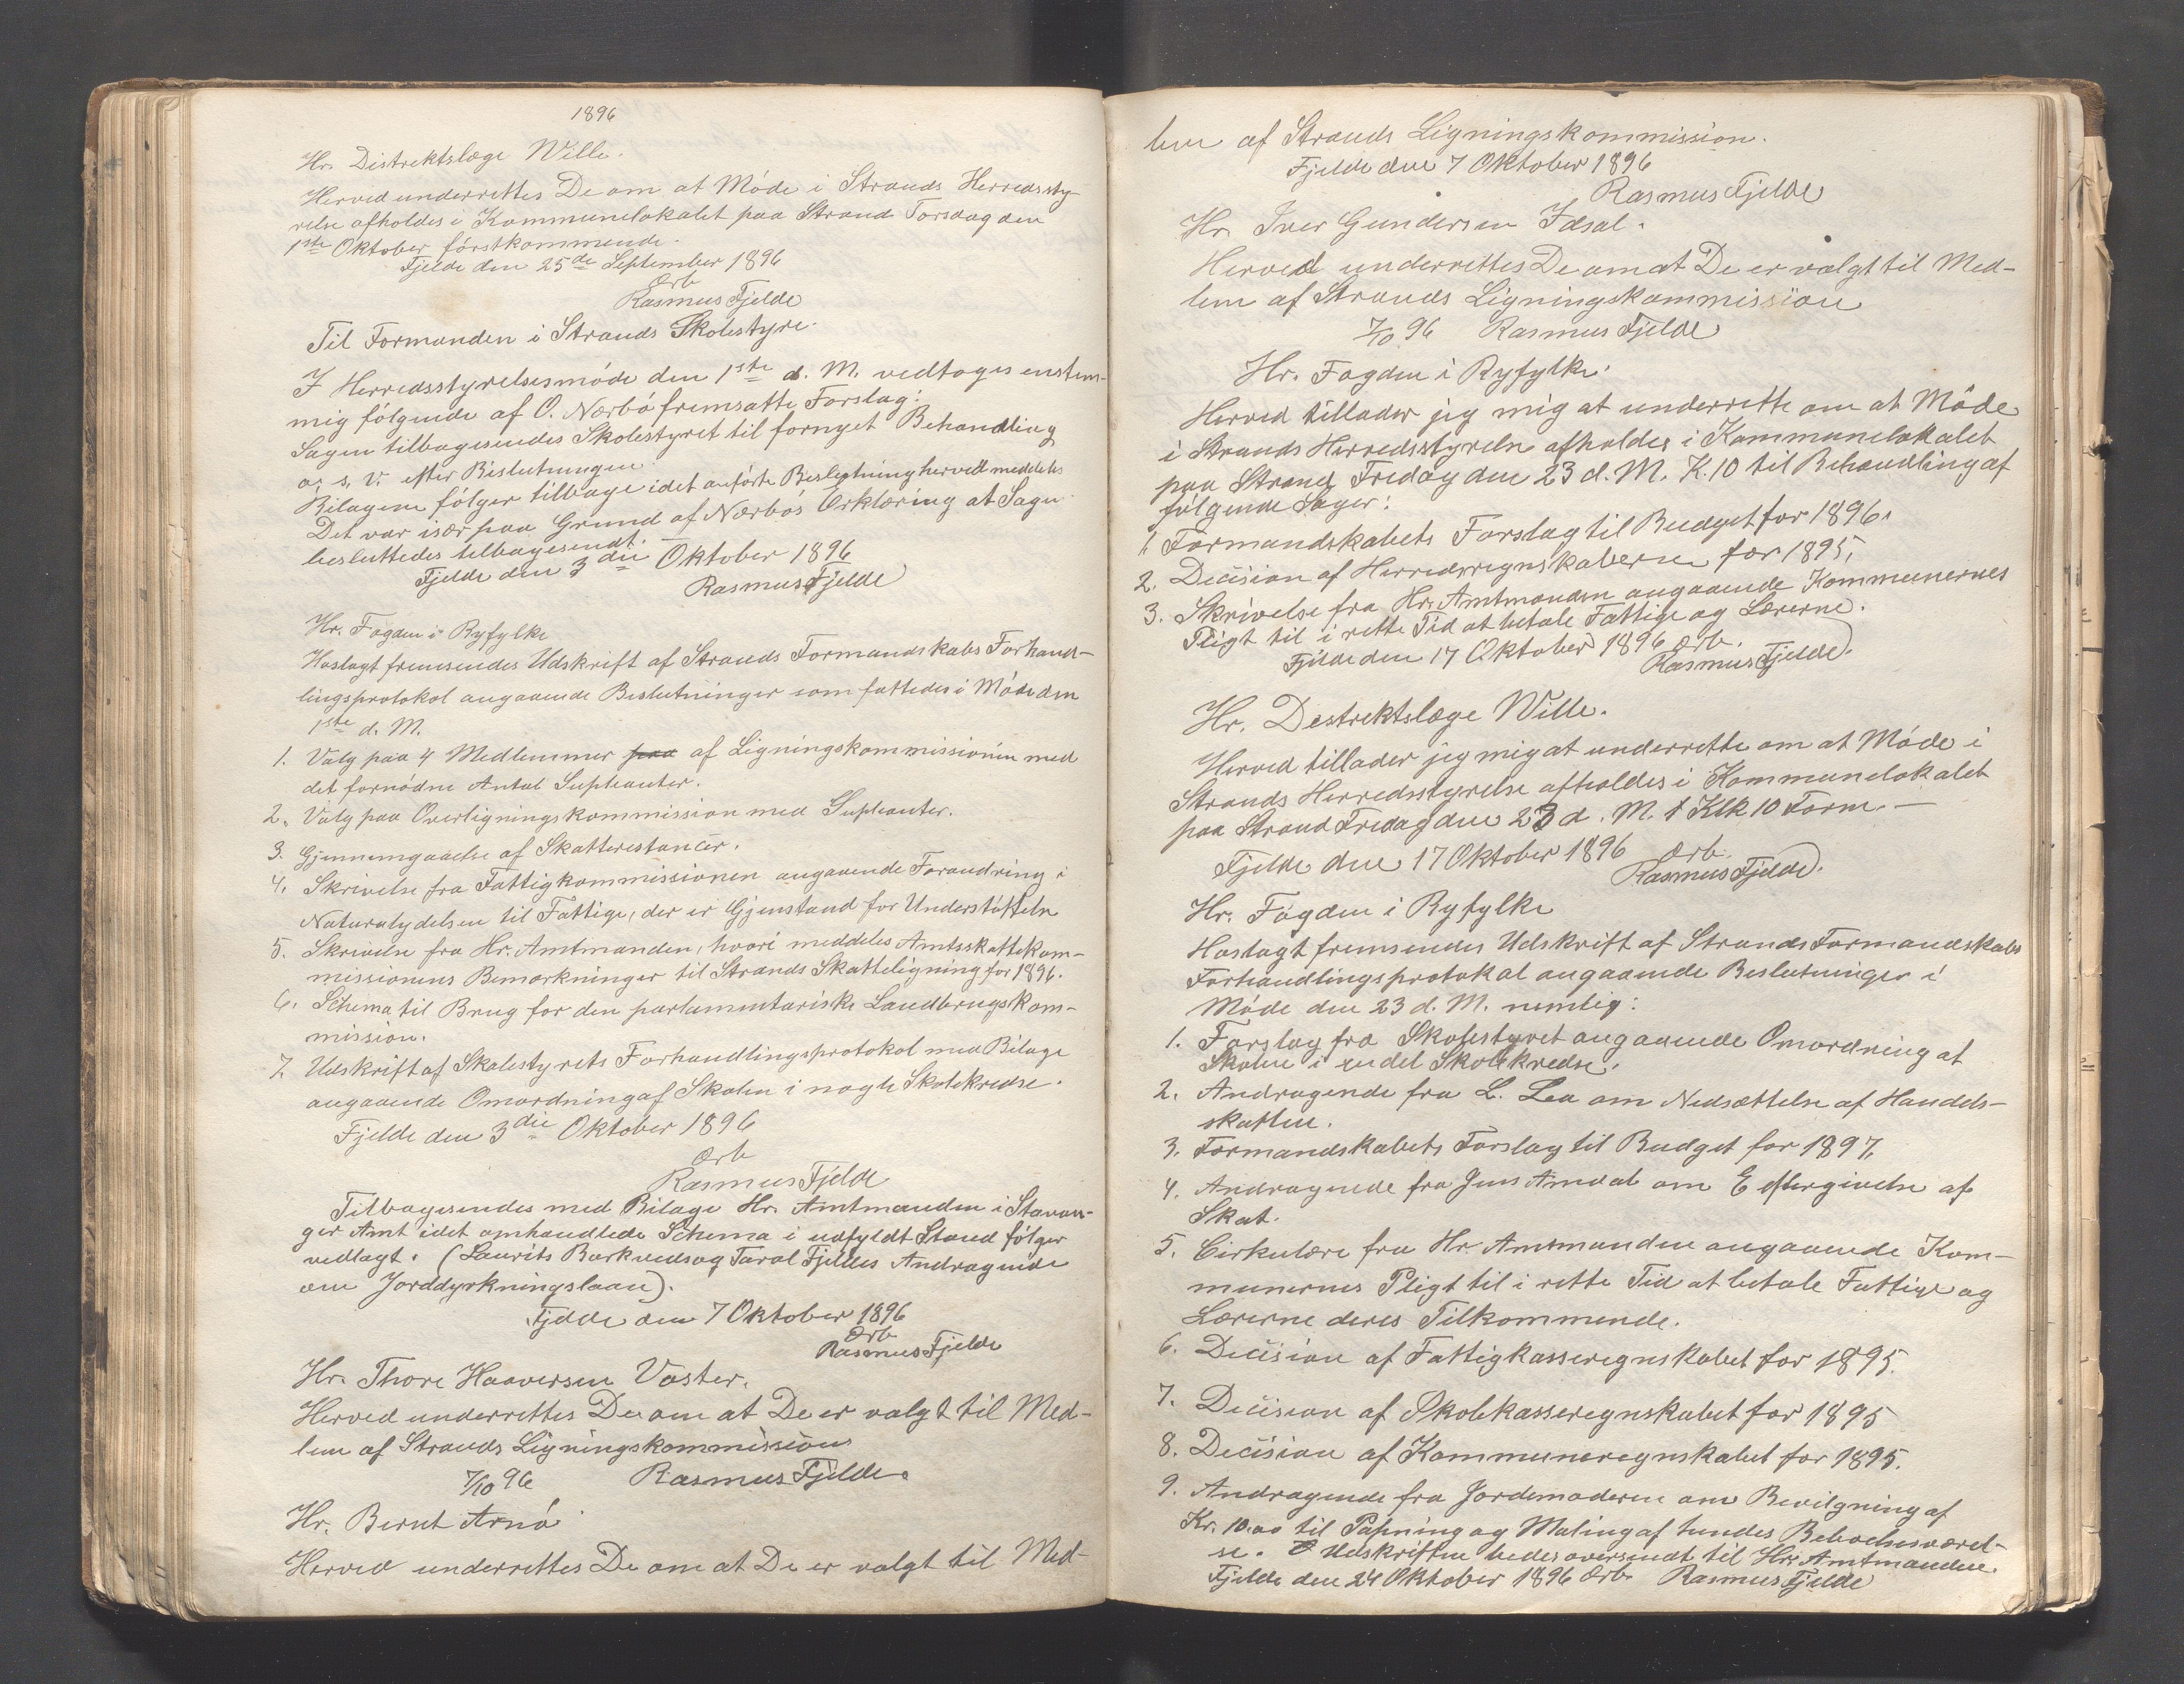 1896
Hr. Distriktslæge Wille.
Herved underrettes De om at Møde i Strands Herredssty-
relse afholdes i Kommunelokalet paa Strand Torsdag den
1ste Oktober förstkommende.
Fjelde den 25de September 1896
Ærb
Rasmus Fjelde
Til Formanden i Strands Skolestyre.
I Herredsstyrelsesmöde den 1ste d. M. vedtoges enstem-
mig følgende af O. Nærbö fremsatte Forslag:
Sagen tilbagesendes Skolestyret til fornyet Behandling
o. s. v. efter Beslutningen
Bilagene fölger tilbage idet anförte Beslutning herved meddeles
Det var især paa Grund af Nærbös Erklæring at Sagen
besluttedes tilbagesendt.
Fjelde den 3die Oktober 1896
Rasmus Fjelde
Hr. Fogden i Ryfylke
Hoslagt fremsendes Udskrift af Strands Formandskabs Forhand-
lingsprotokol angaaende Beslutninger som fattedes i Möde den
1ste d. M.
1. Valg paa 4 Medlemmer paa af Ligningskommissionen med
det fornödne Antal Supleanter.
2. Valg paa Overligningskommission med Supleanter.
3. Gjennemgaaelse af Skatterestancer.
4. Skrivelse fra Fattigkommissionen angaaende Forandring i
Naturalydelsen til Fattige, der er Gjenstand for Understöttelse
5. Skrivelse fra Hr. Amtmanden, hvori meddeles Amtsskattekom-
missionens Bemærkninger til Strands Skatteligning for 1896.
6. Schema til Brug for den parlamentariske Landbrugskom-
mission.
7. Udskrift af Skolestyrets Forhandlingsprotokol med Bilage
angaaende Omordning af Skolen i nogle Skolekredse.
Fjelde den 3die Oktober 1896
Ærb
Rasmus Fjelde
Tilbagesendes med Bilage Hr. Amtmanden i Stavan-
ger Amt idet omhandlede Schema i udfyldt Stand fölger
vedlagt. (Laurits Barkveds og Taral Fjeldes Andragende
om Jorddyrkningslaan).
Fjelde den 7 Oktober 1896
Ærb
Rasmus Fjelde
Hr. Thore Haaversen Vaster.
Herved underrettes De om at De er valgt til Med-
lem af Strands Ligningskommission
7/10 96 Rasmus Fjelde.
Hr. Bernt Arnö
Herved underrettes De om at De er valgt til Med-
lem af Strands Ligningskommission.
Fjelde den 7 Oktober 1896
Rasmus Fjelde
Hr. Iver Gundersen Idsal.
Herved underrettes De om at De er valgt til Med-
lem af Strands Ligningskommission
7/10 96 Rasmus Fjelde
Hr. Fogden i Ryfylke.
Herved tillader jeg mig at underrette om at Möde
i Strands Herredsstyrelse afholdes i Kommunelokalet
paa Strand Fredag den 23 d. M. K. 10 til Behandling af
fölgende Sager:
1. Formandskabets Forslag til Budget for 1896.
2. Decision af Herredsregnskaberne for 1895.
3. Skrivelse fra Hr. Amtmanden angaaende Kommunernes
Pligt til i rette Tid at betale Fattige og Lærerne.
Fjelde den 17 Oktober 1896 Ærb.
Rasmus Fjelde.
Hr. Destriktslæge Wille.
Herved tillader jeg mig at underrette om at Möde i
Strands Herredsstyrelse afholdes i Kommunelokalet
paa Strand Fredag den 23 d. M. Klk 10 Form. —
Fjelde den 17 Oktober 1896 Ærb.
Rasmus Fjelde.
Hr. Fogden i Ryfylke
Hoslagt fremsendes Udskrift af Strands Formandskabs
Forhandlingsprotokol angaaende Beslutninger i
Möde den 23 d. M. nemlig:
1. Forslag fra Skolestyret angaaende Omordning af
Skolen i endel Skolekredse.
2. Andragende fra L. Lea om Nedsættelse af Handels-
skatten.
3. Formandskabets Forslag til Budget for 1897.
4. Andragende fra Jens Amdal om Eftergivelse af
Skat.
5. Cirkulære fra Hr. Amtmanden angaaende Kom-
munernes Pligt til i rette Tid at betale Fattige og
Lærerne deres Tilkommende.
6. Decision af Fattigkasseregnskabet for 1895.
7. Decision af Skolekasseregnskabet for 1895
8. Decision af Kommuneregnskabet for 1895.
9. Andragende fra Jordemoderen om Bevilgning af
Kr. 10.00 til Papning og Maling af hendes Beboelsesværel-
se. Udskriften bedes oversendt til Hr. Amtmanden.
Fjelde den 24 Oktober 1896 Ærb. Rasmus Fjelde